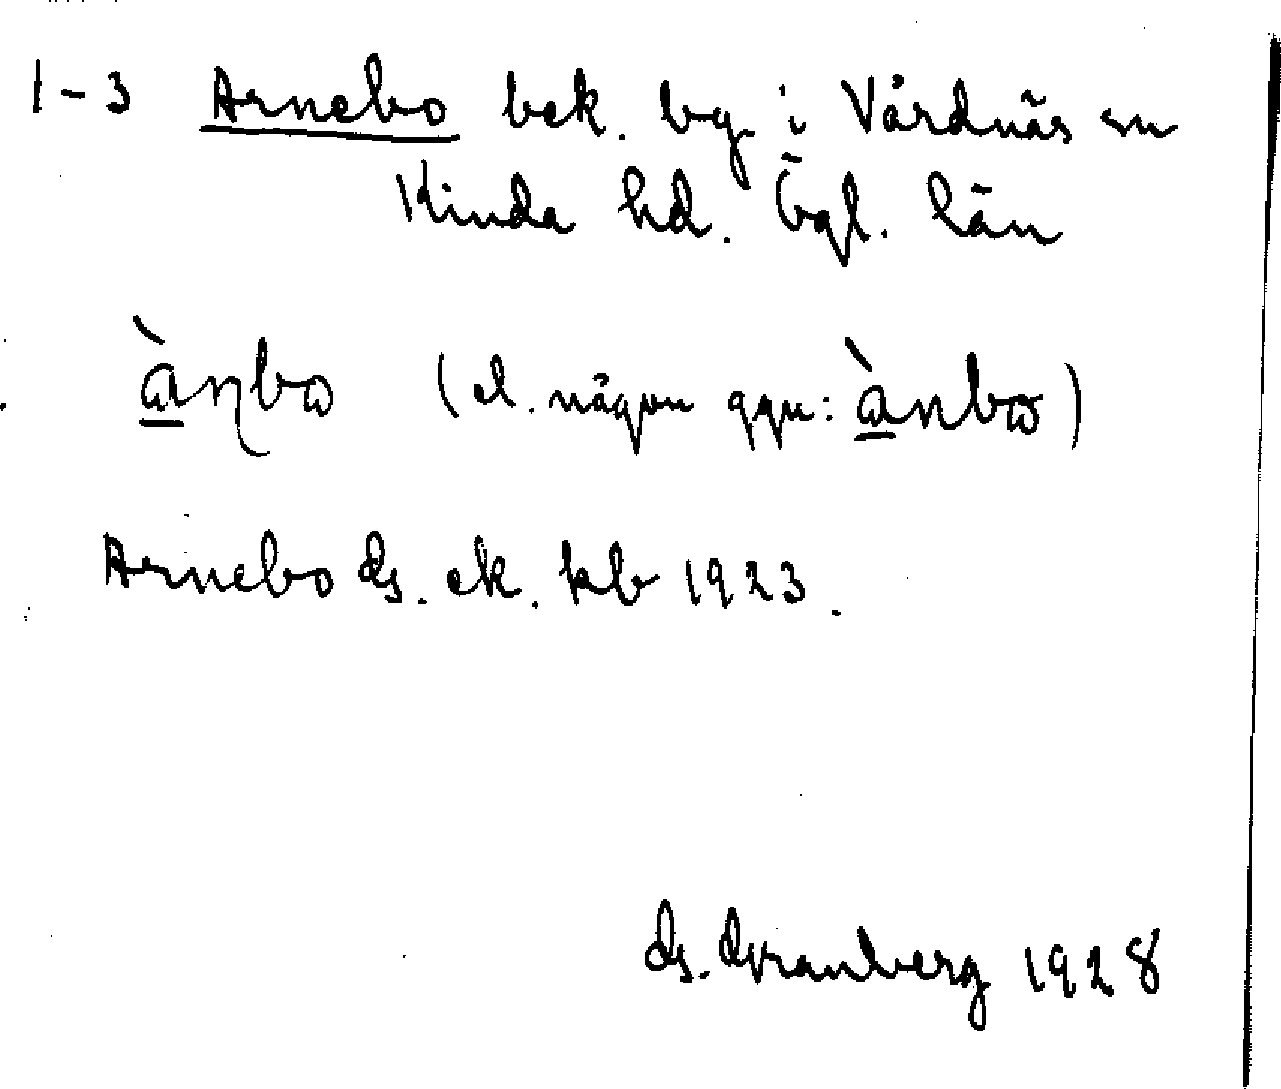 1-3 Arnebo bek. by i Vårdnäs sn
Kinda hd. Ögl. län
àɳbω (el. någon ggn: ànbω)
Arnebo ds. ek. kb 1923.
Granberg 1928